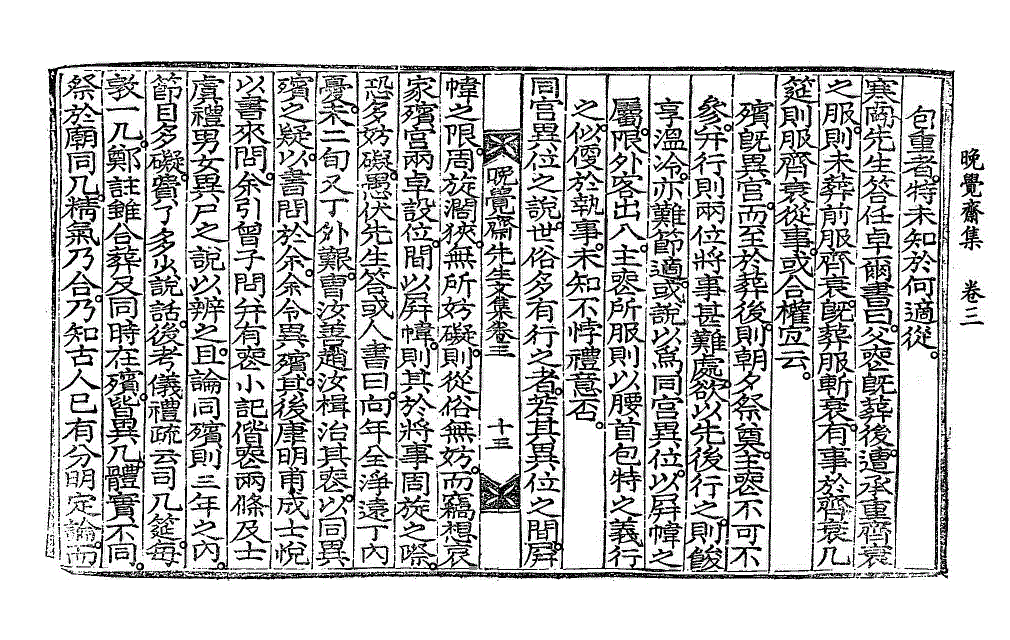 晚覺齋集 卷三
包重者。特未知於何適從。
寒岡先生答任卓爾書曰。父喪旣葬後。遭承重齊衰
之服。則未葬前服齊衰。旣葬服斬衰。有事於齊衰几
筵。則服齊衰從事。或合權宜云。
殯旣異宮。而至於葬後。則朝夕祭奠。主喪不可不
參。幷行則兩位將事甚難處。欲以先後行之。則餕
享溫冷。亦難節適。或說以爲同宮異位。以屛幃之
屬。限外客出入。主喪所服則以腰首包特之義行
之。似便於執事。未知不悖禮意否。
同宮異位之說。世俗多有行之者。若其異位之間。屛
晚覺齋先生文集卷三 十三
幃之限。周旋濶狹。無所妨礙。則從俗無妨。而竊想哀
家殯宮兩卓設位。間以屛幃。則其於將事周旋之際。
恐多妨礙。愚伏先生答或人書曰。向年金淨遠丁內
憂。未二旬又丁外艱。曺汝益趙汝楫治其喪。以同異
殯之疑。以書問於余。余令異殯。其後康明甫成士悅
以書來問。余引曾子問幷有喪小記偕喪兩條及士
虞禮男女異尸之說以辨之。且論同殯則三年之內。
節目多礙。費了多少說話。後考儀禮疏云司几筵。每
敦一几。鄭註雖合葬及同時在殯。皆異几。體實不同。
祭於廟同几。精氣乃合。乃知古人已有分明定論。而